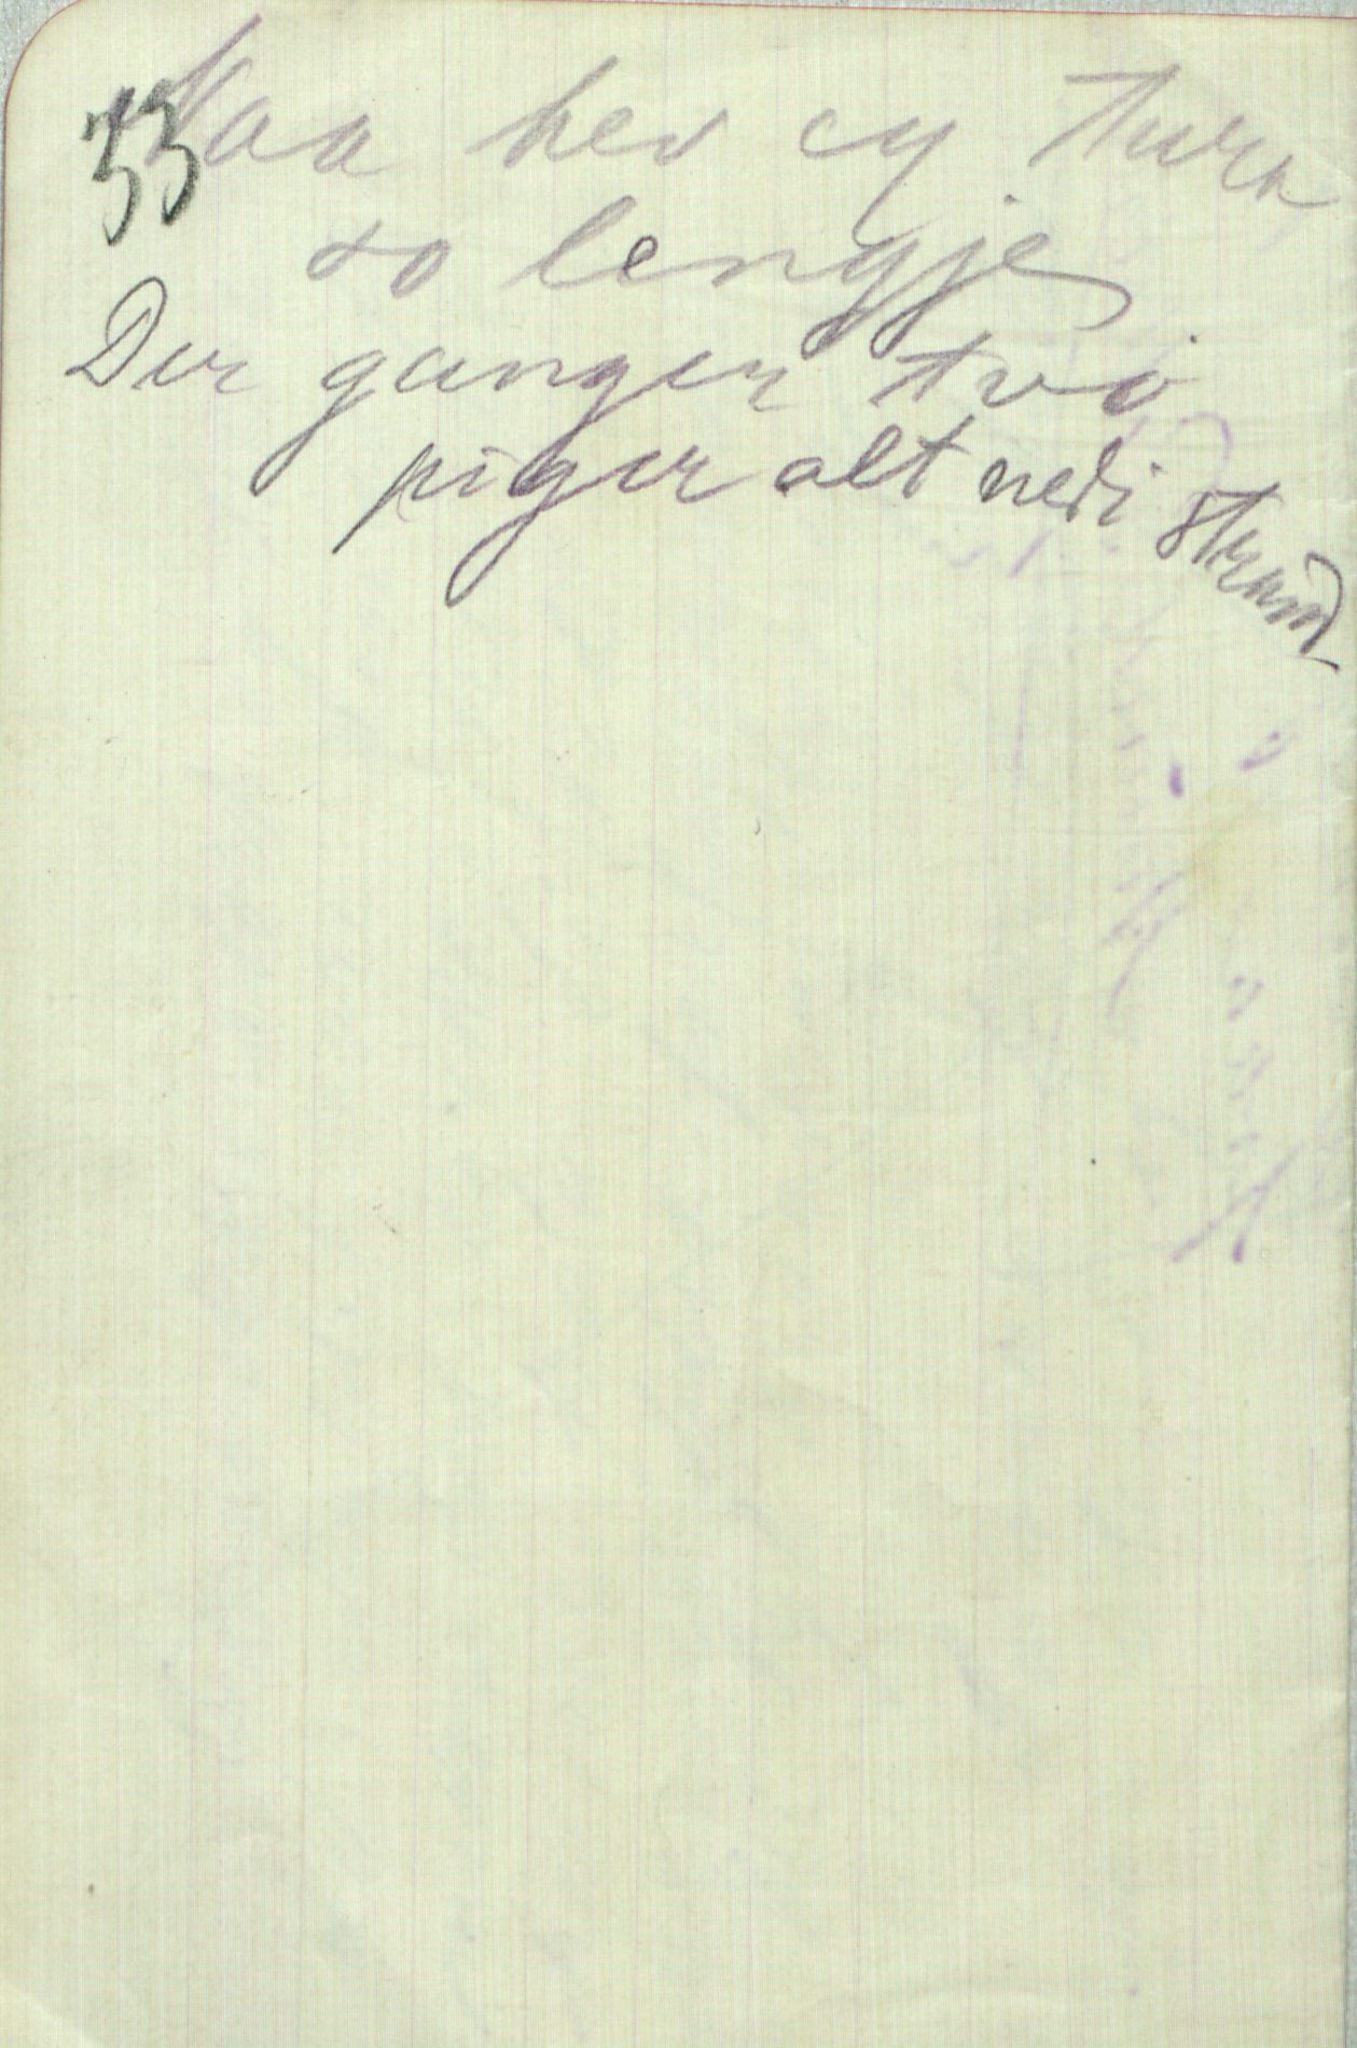 33
Naa hev eg turn
so lengje
Der ganger tvo
piger alt ned i strand